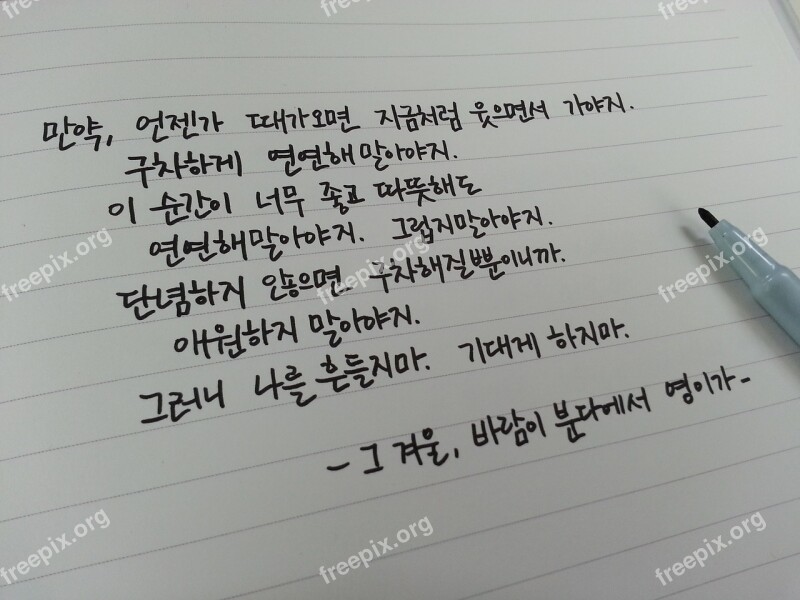 만약, 언젠가 때가오면 지금처럼 웃으면서 가야지.
구차하게 연연해말아야지.
이 순간이 너무 좋고 따뜻해도
연연해말아야지. 그럽지말아야지.
단념하지 않으면 구차해질뿐이니까.
애원하지 말아야지.
그러니 나를 흔들지마. 기대게 하지마.
- 그 겨울, 바람이 분다에서 영이가-
freepix.org
freepix.org
freepix.org
freepix.org
freepix.org
freepix.org